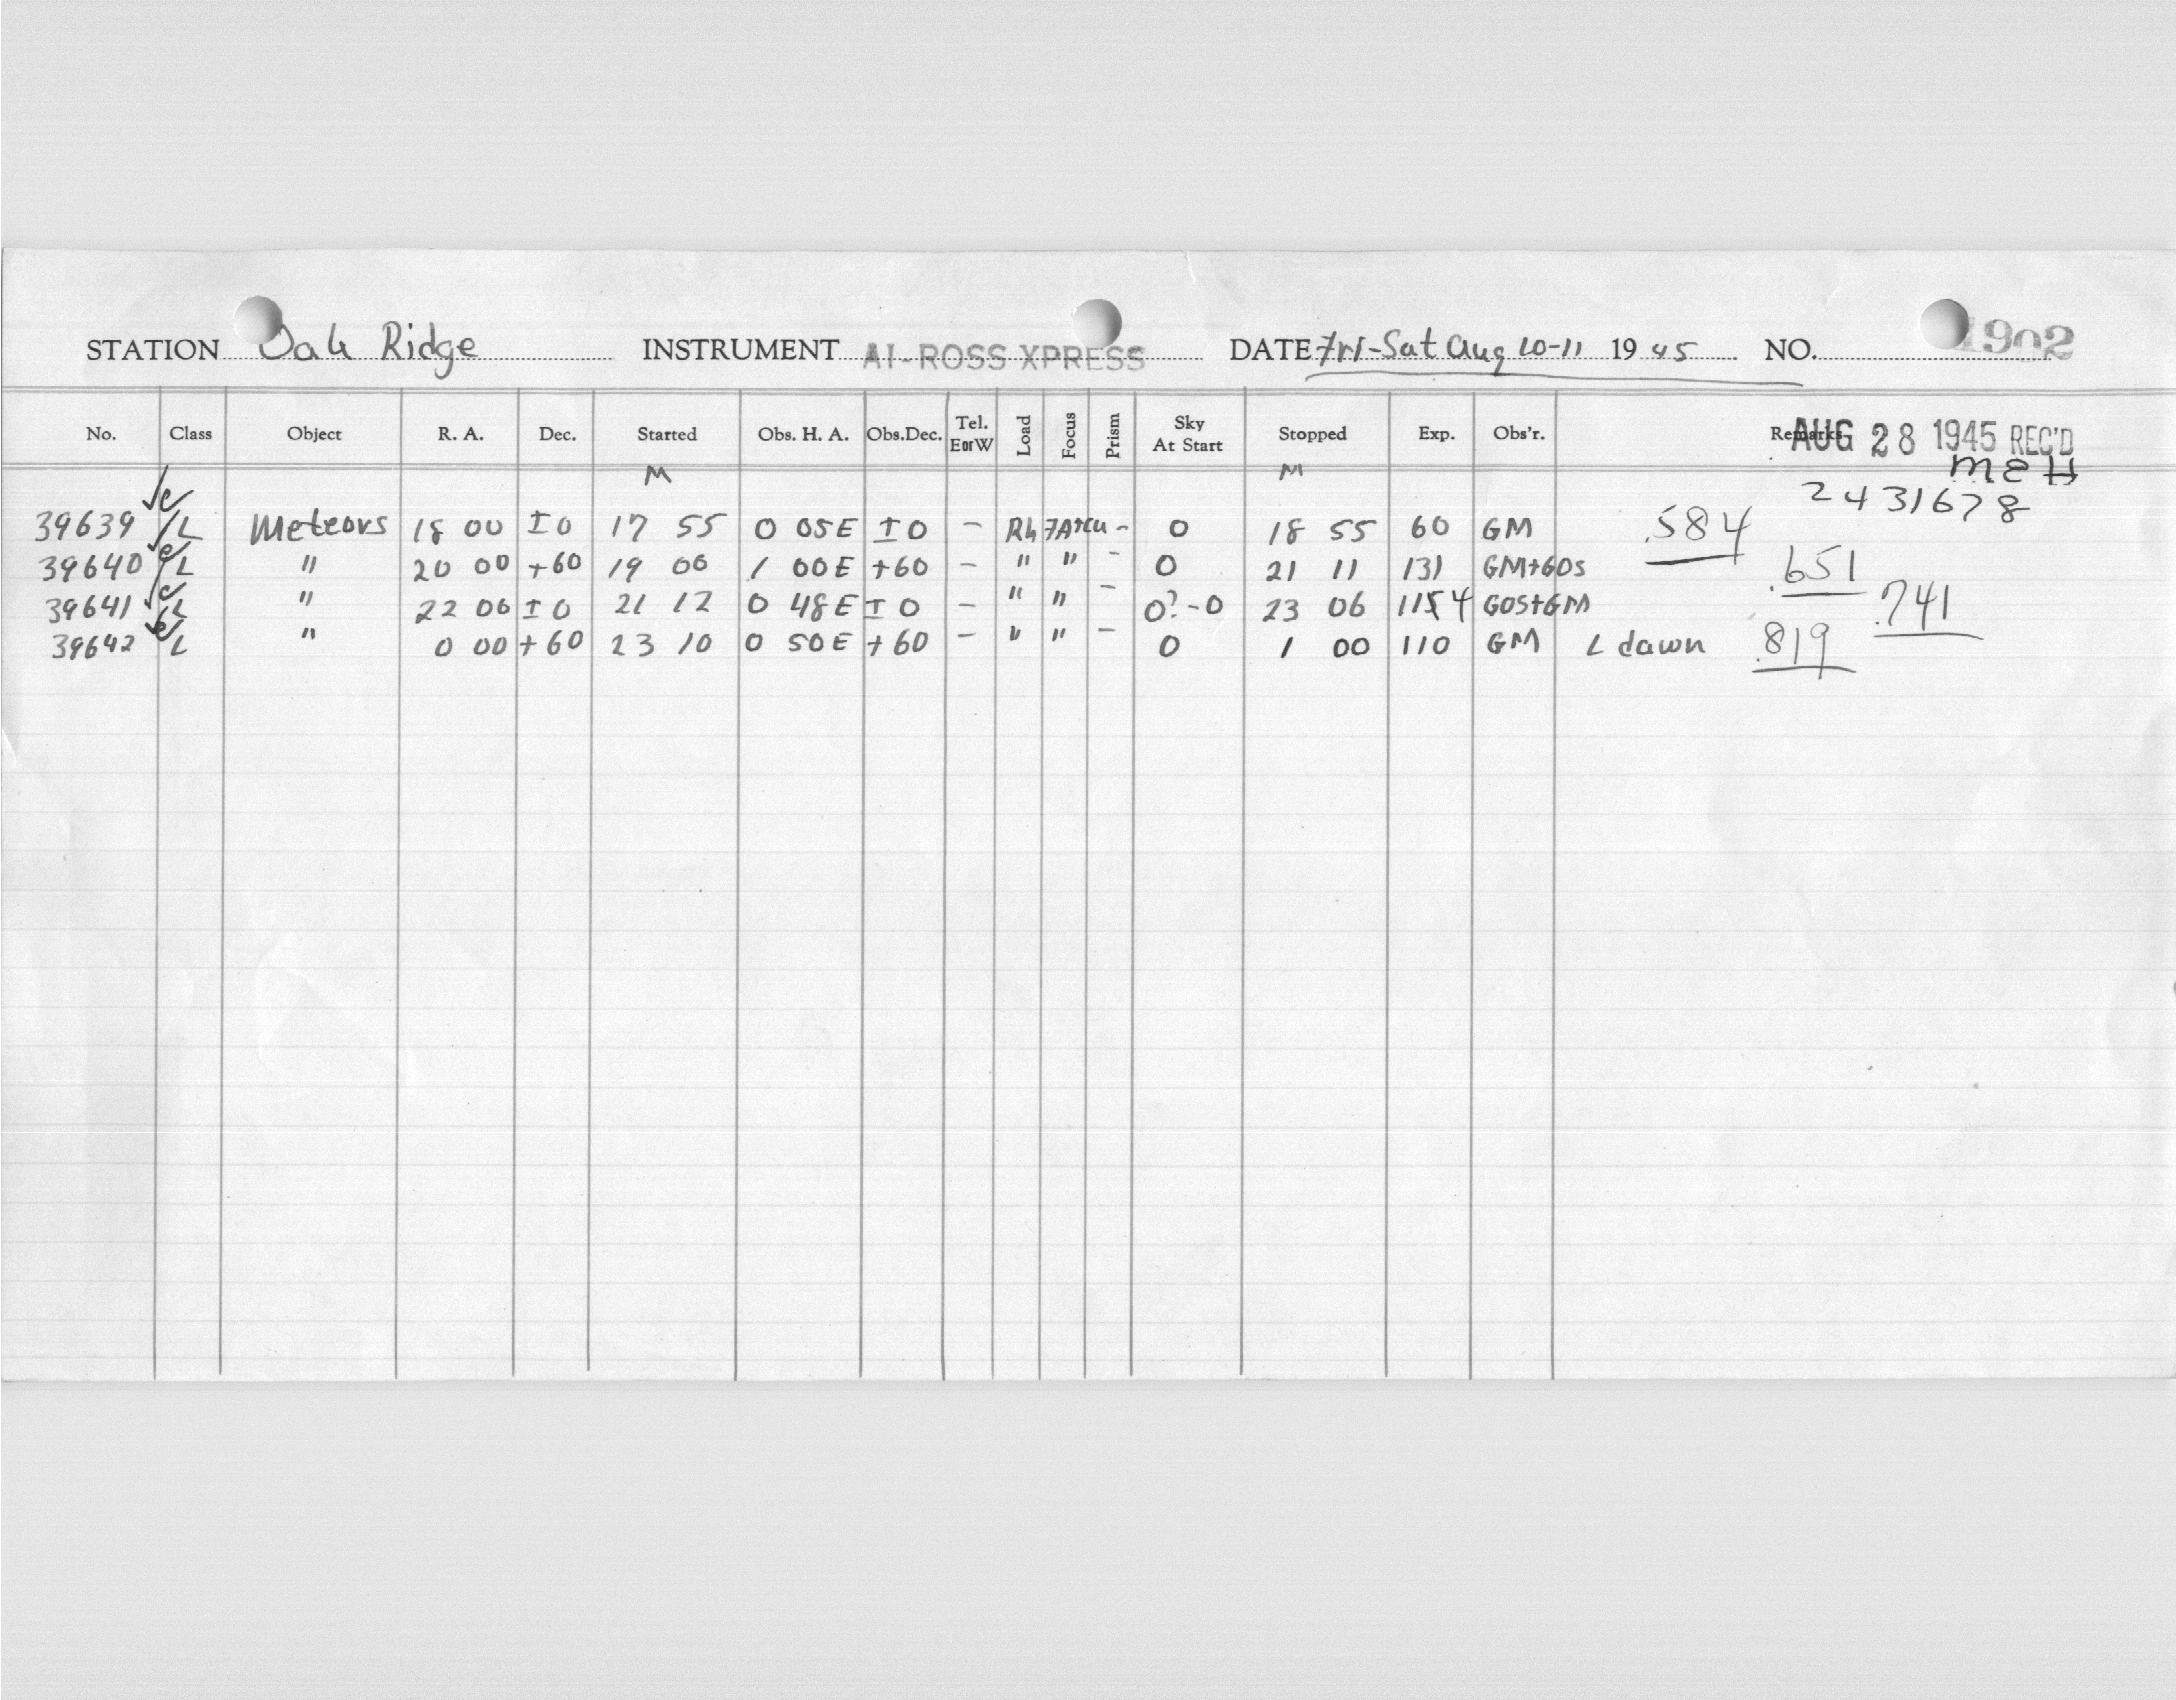 STATION Oak Ridge INSTRUMENT AI-ROSS XPRESS DATE Fri-Sat Aug 10-11 1945 NO. 1902
No. Class Object R. A. Dec. Started Obs. H. A. Obs.Dec. Tel. EorW Load Focus Prism Sky At Start Stopped Exp. Obs'r. Remarks AUG 28 1945 REC'D
M M MEH
2431678
39639 L Meteors 18 00 ±0 17 55 0 05E ±0 - Rh - 0 18 55 60 GM .584
39640 L " 20 00 +60 19 00 1 00E +60 - " " - 0 21 11 131 GM+GOS .651
39641 L " 22 00 ±0 21 12 0 48E ±0 - " " - 0?-0 23 06 114 GOS+GM .741
39642 L " 0 00 +60 23 10 0 50E +60 - " " - 0 1 00 110 GM L dawn .819